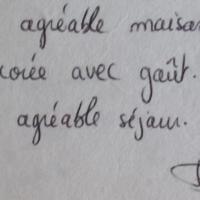 agréable maison
corée avec goût.
agréable séjour.